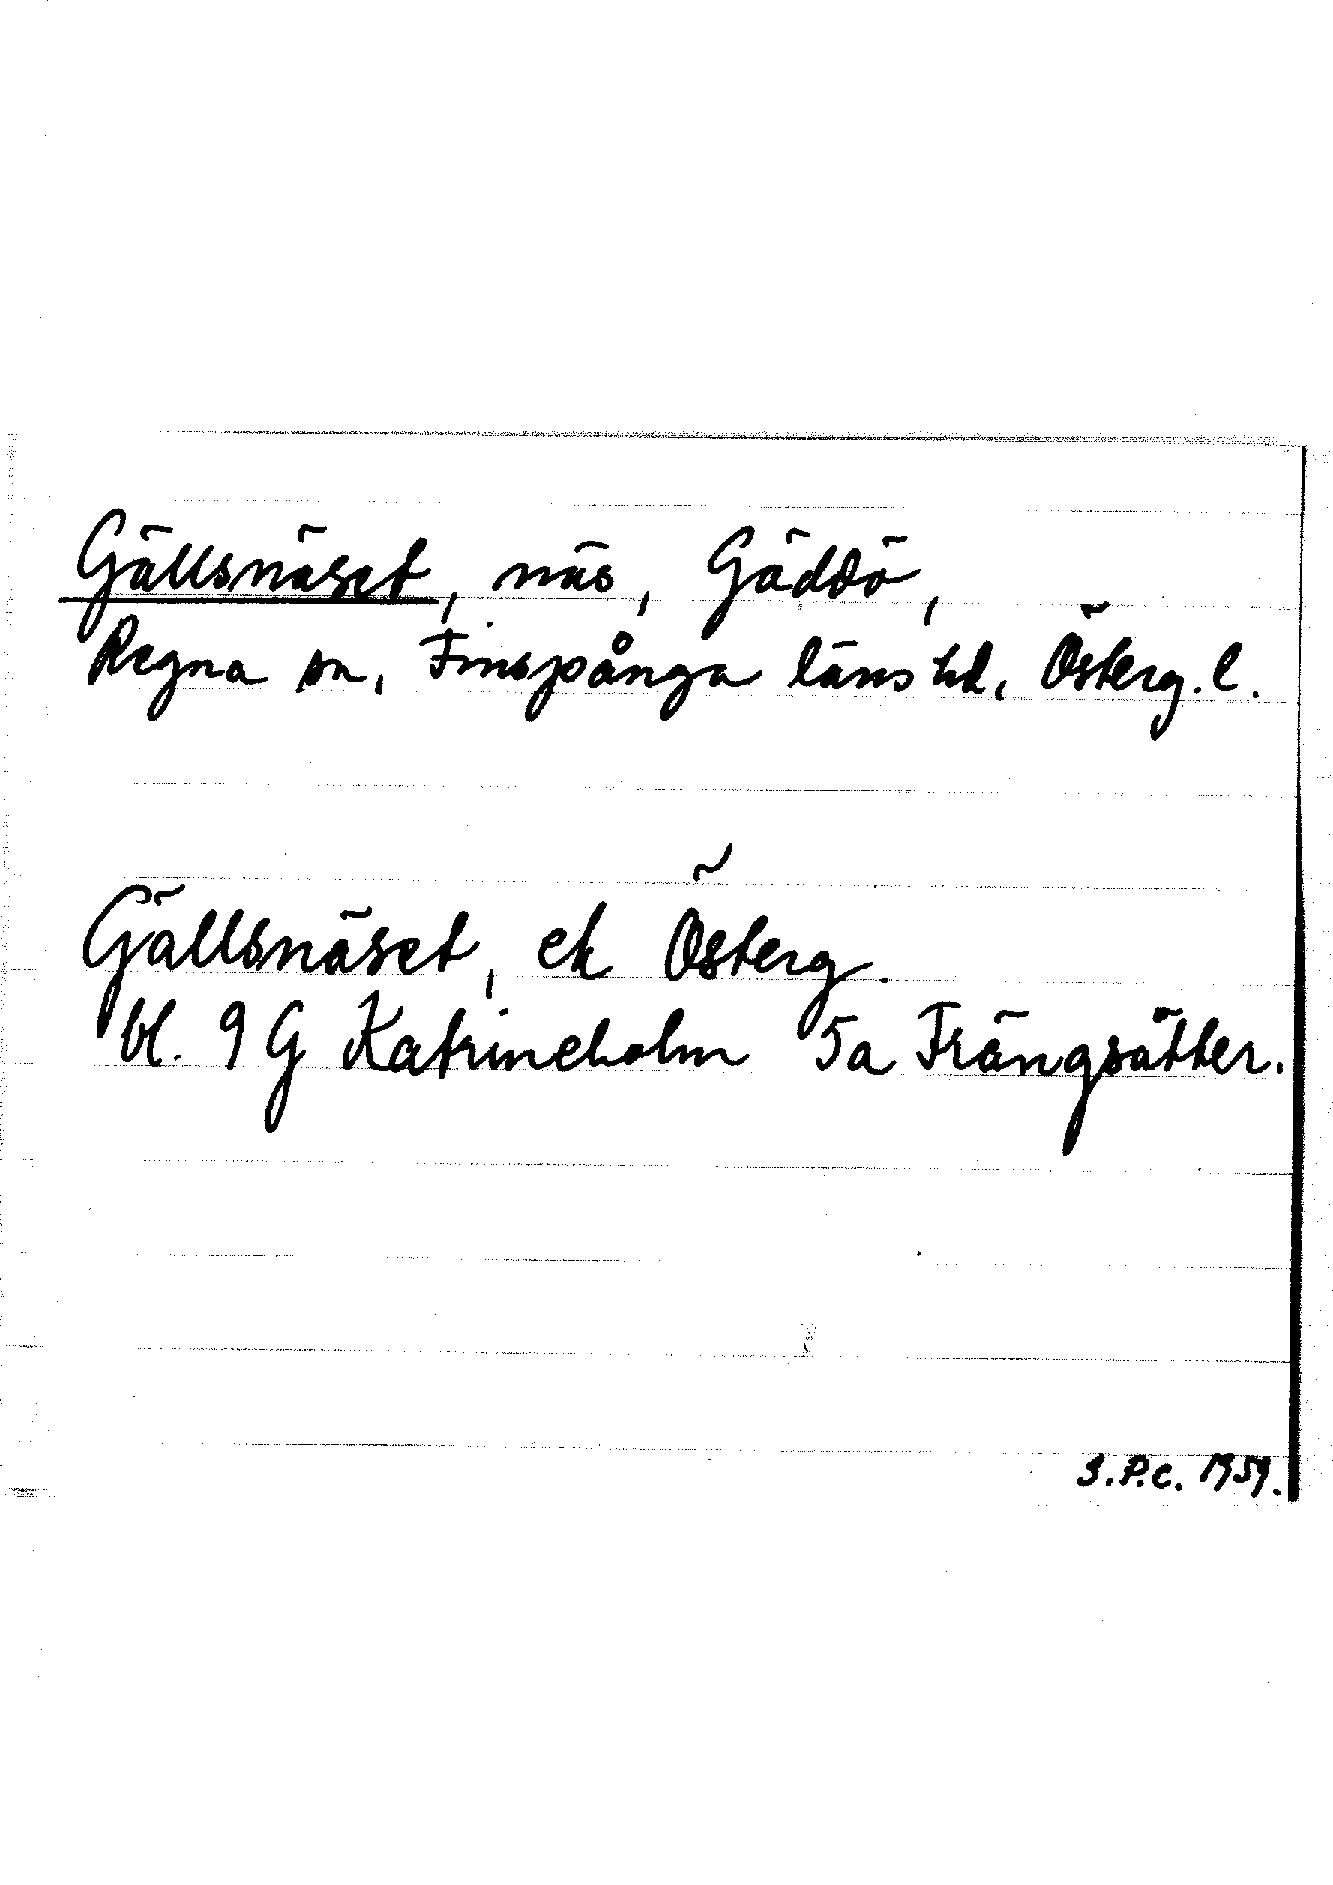 Gällsnäset, näs, Gäddö,
Regna sn, Finspånga läns hd, Österg. l.
Gällsnäset, ek Österg.
bl. 9 G Katrineholm 5a Trängsätter.
S.P.C. 1959.